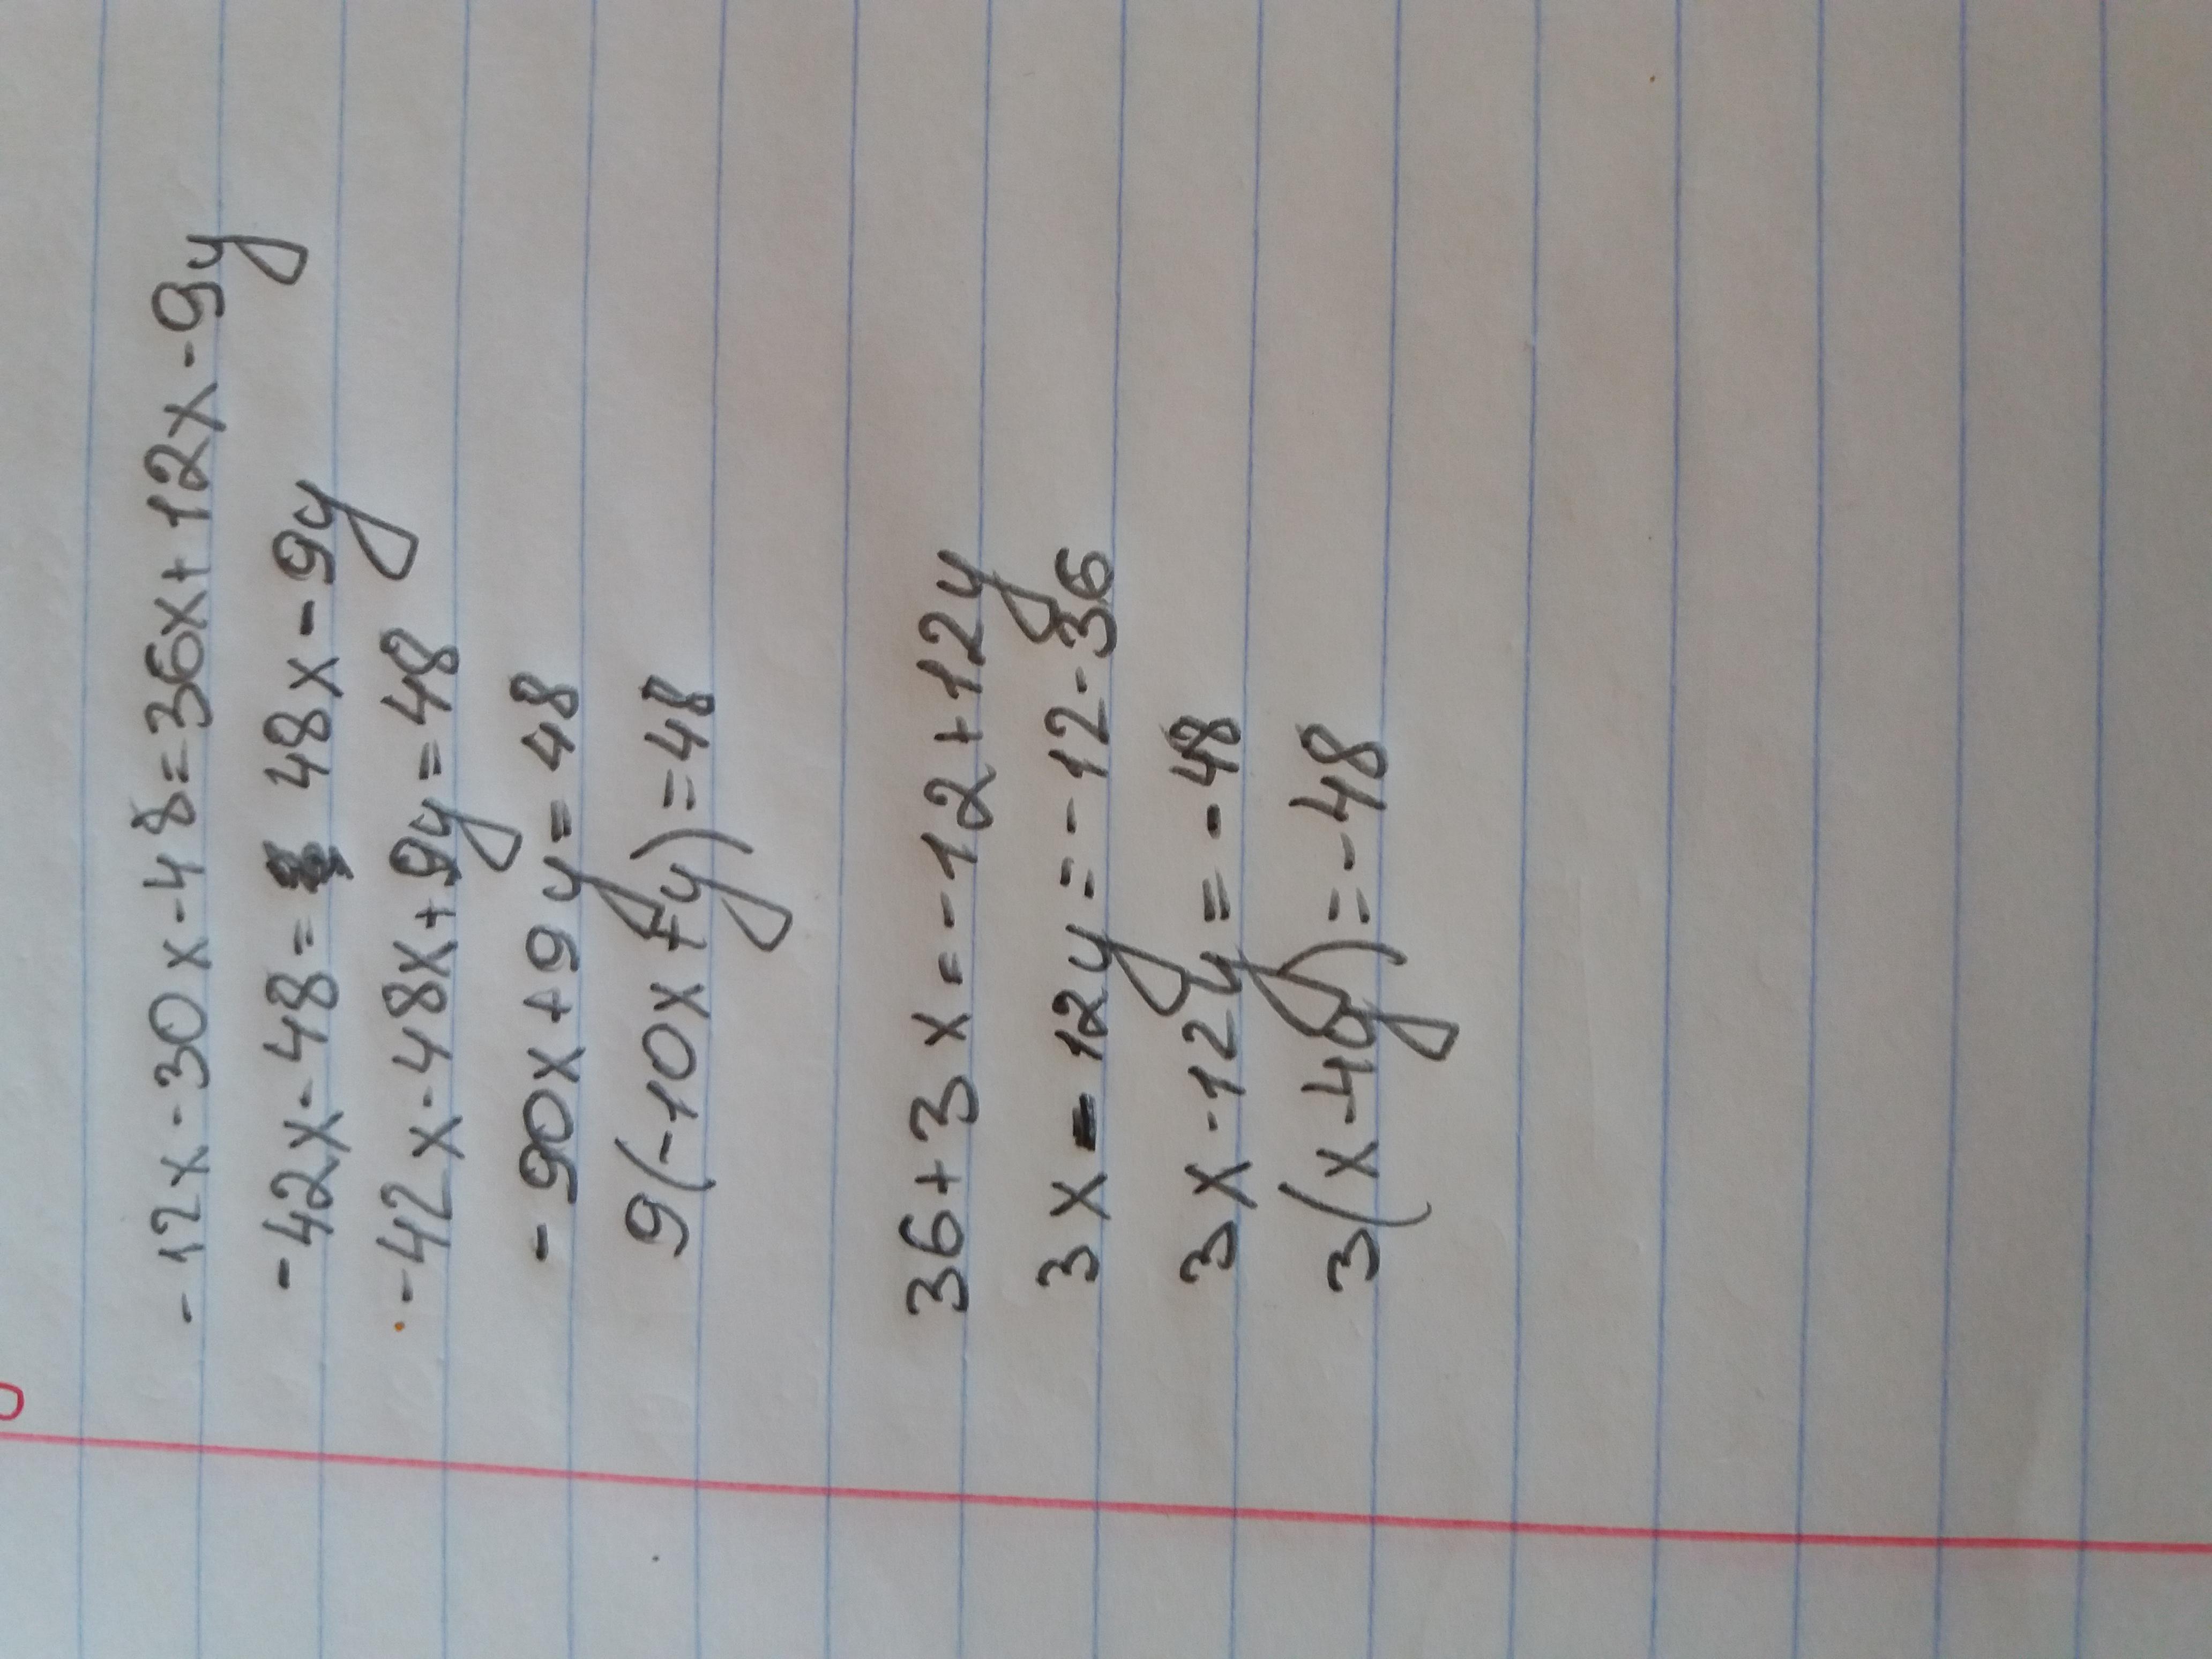 -12x-30x-48=36x+12x-9y
-42x-48= 48x-9y
-42x-48x+9y=48
-90x+9y=48
9(-10x+y)=48
36+3x=-12+12y
3x-12y=-12-36
3x-12y=-48
3(x-4y)=-48